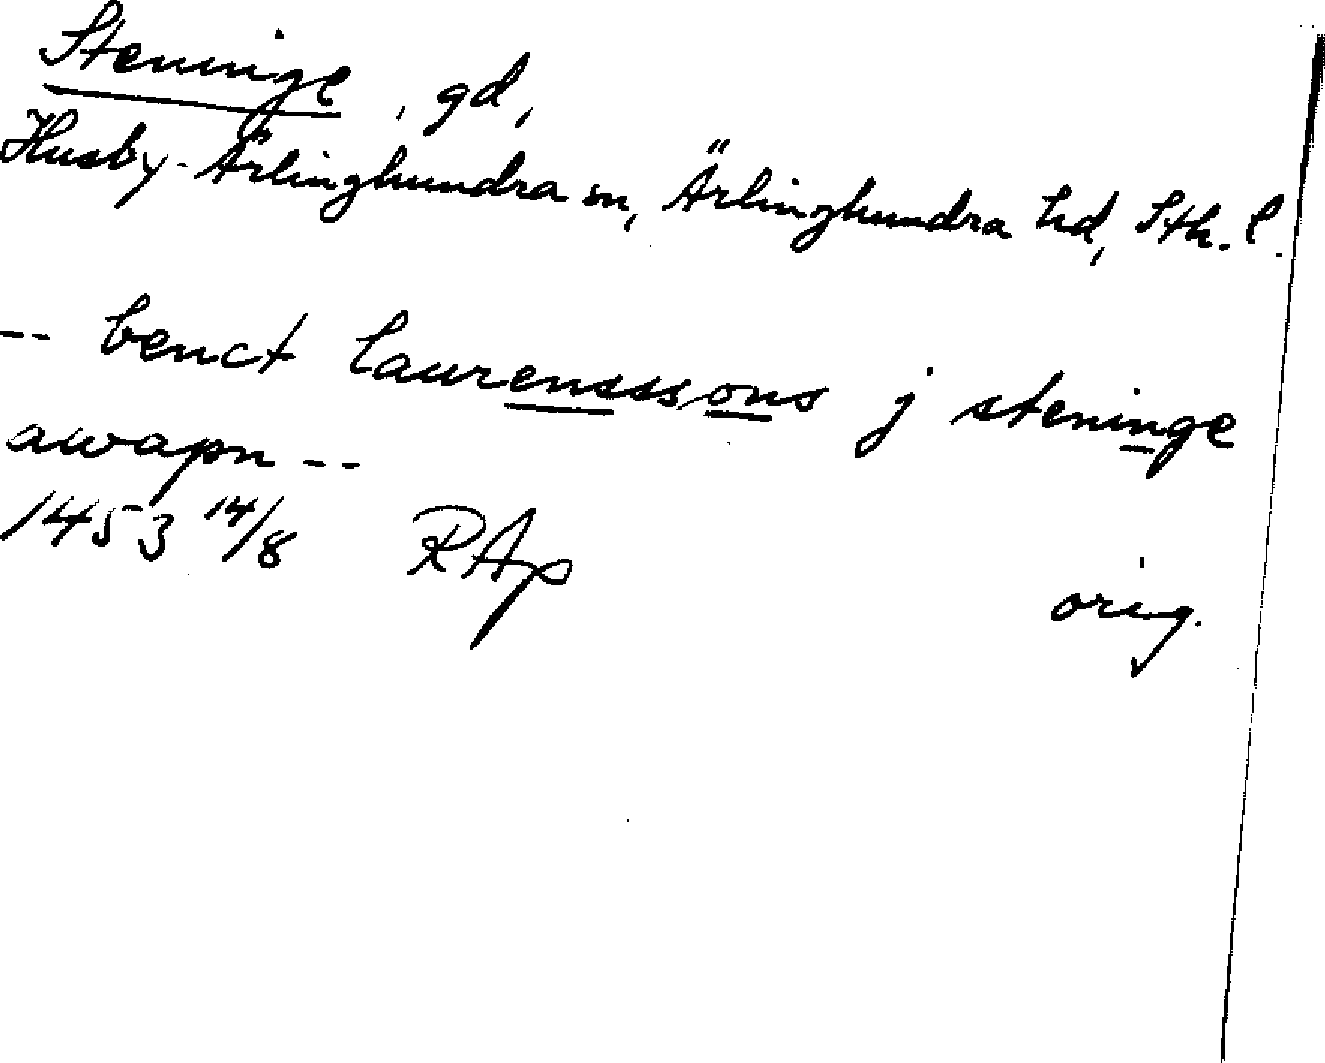 Steninge, gd,
Husby-Ärlinghundra sn, Ärlinghundra hd, Sth. l.
-- benct laurensssons j steninge
awapn --
1453 14/8 RAp orig.